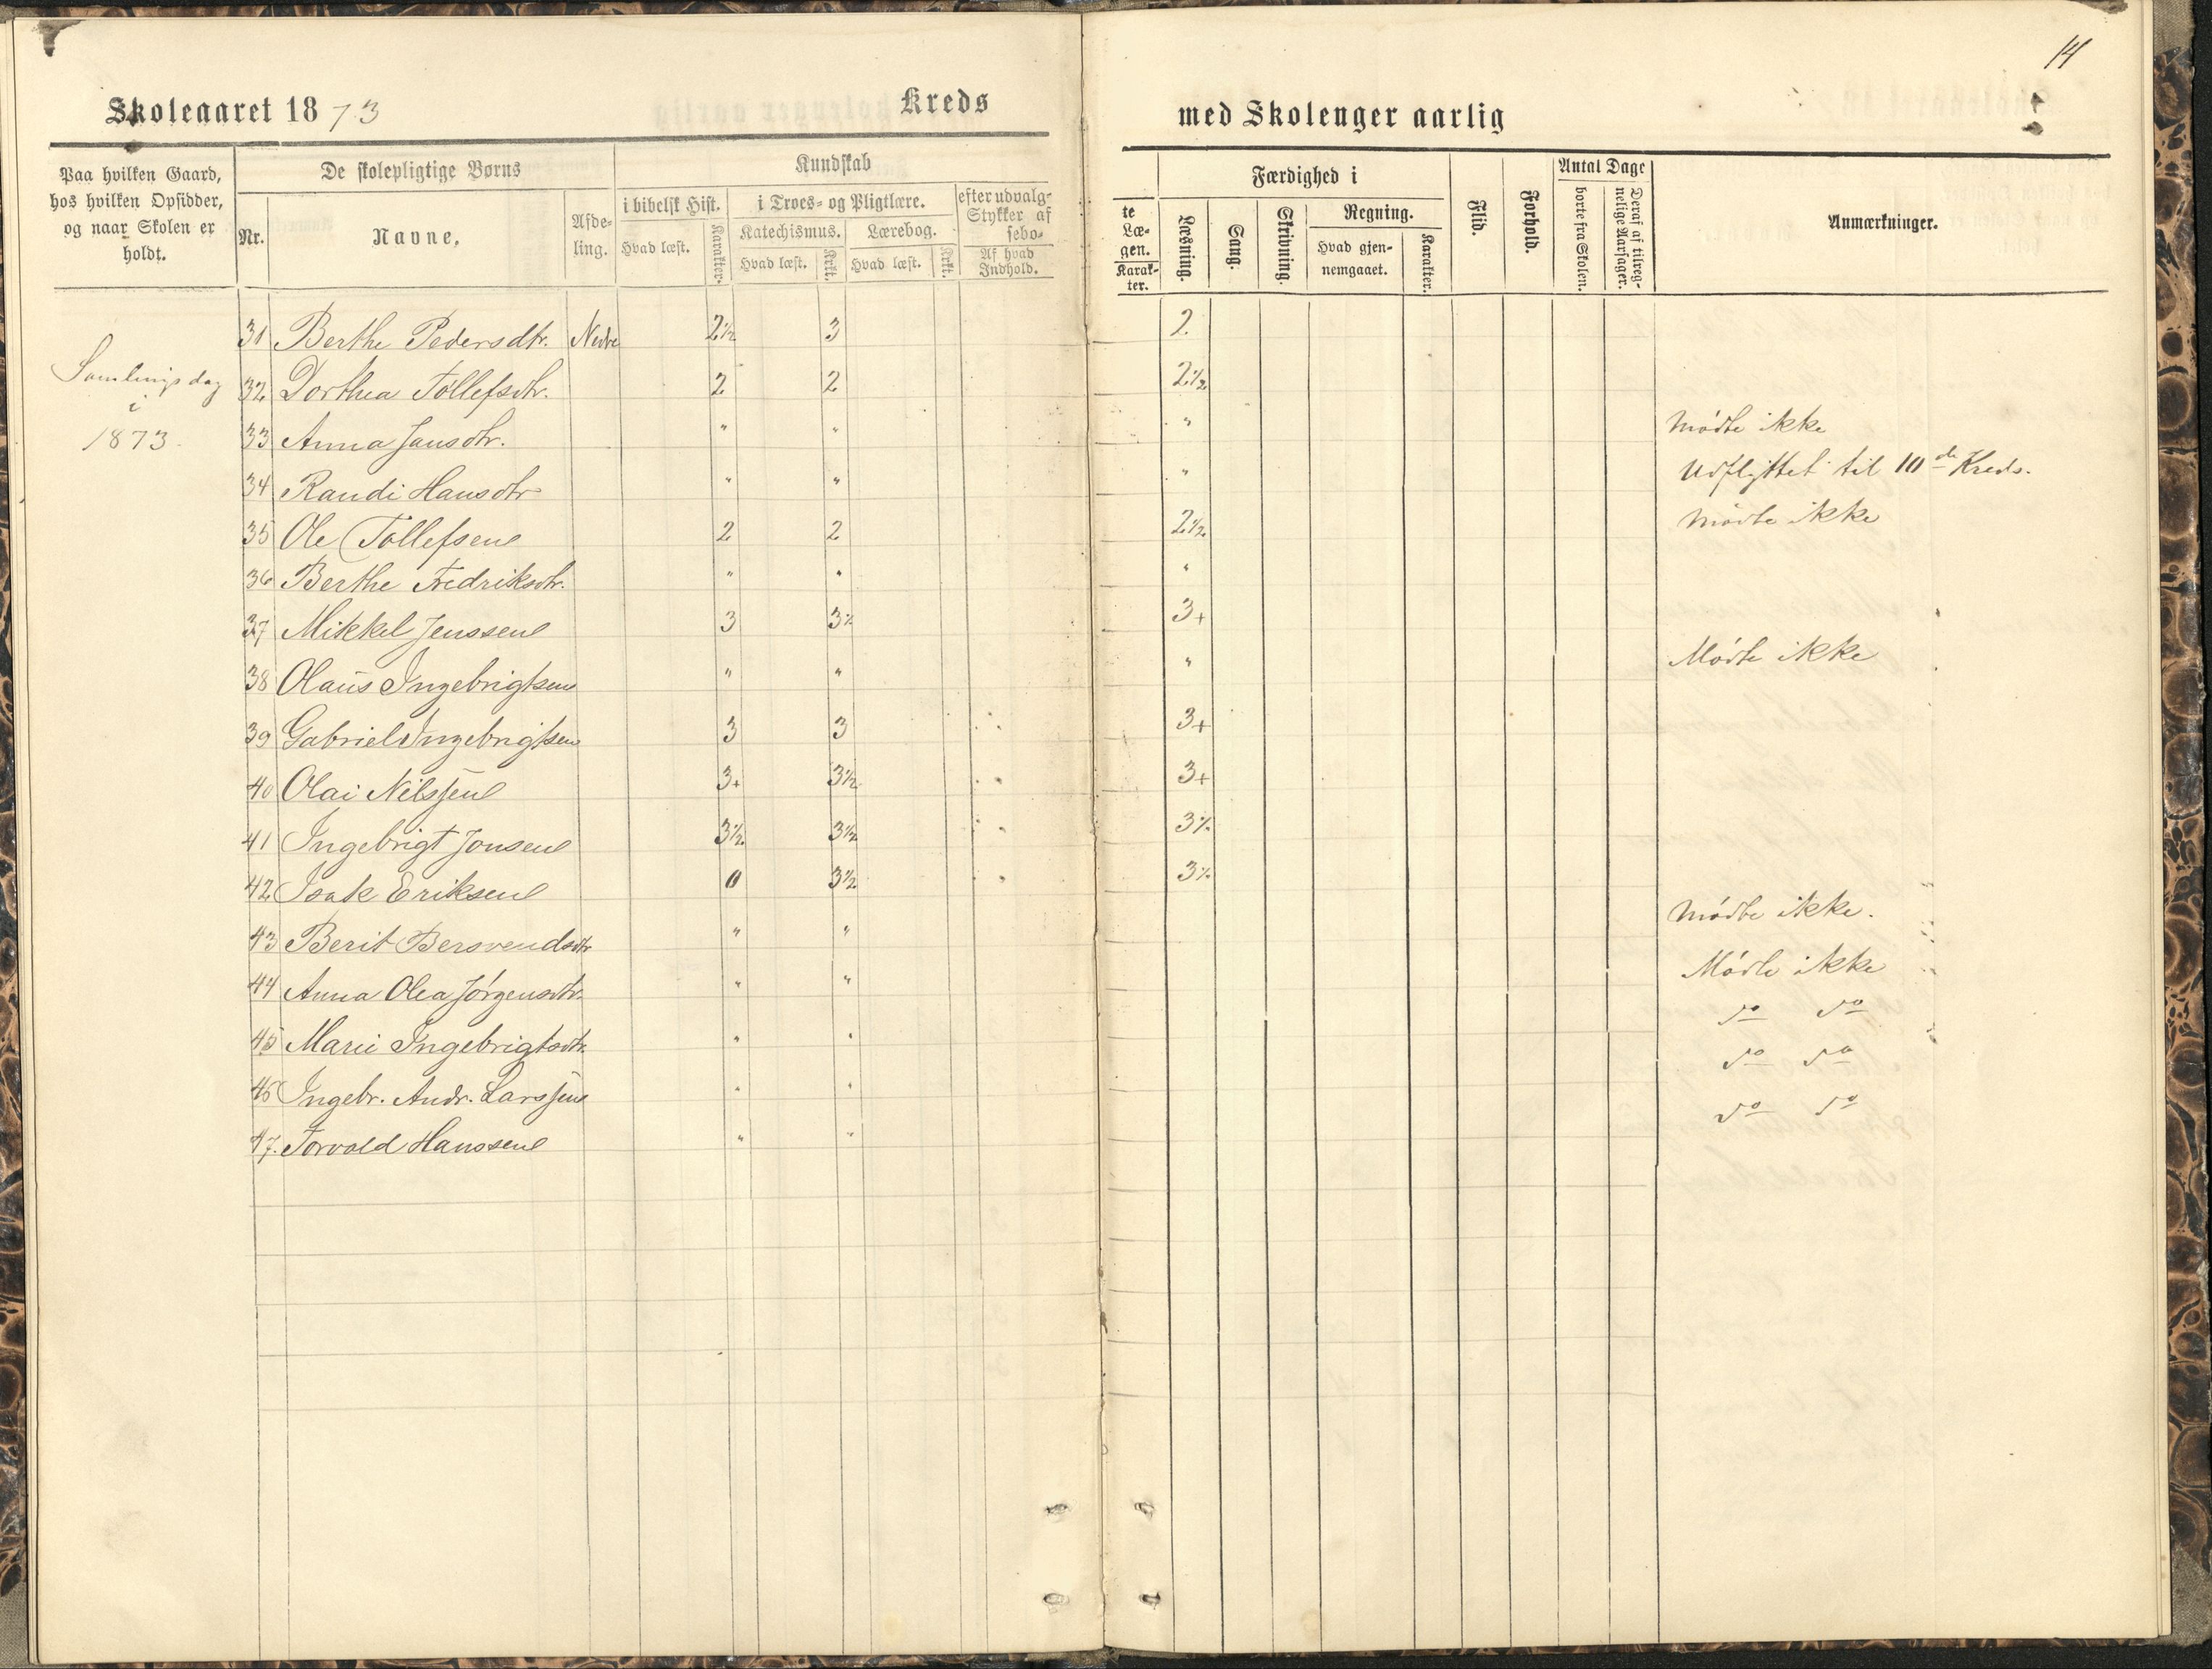 14
Skoleaaret 1873 Kreds med Skolenger aarlig
Paa hvilken Gaard, hos hvilken Opsidder, og naar Skolen er holdt.
De skolepligtige Børns
Nr. Navne. Afdeling.
Kundskab
i bibelsk Hist. Hvad læst. Karakter.
i Troes- og Pligtlære.
Katechismus. Hvad læst. Krkt.
Lærebog. Hvad læst. Krkt.
efter udvalg- Stykker af sebo-
Af hvad Indhold.
te Læ- gen. Karak- ter.
Færdighed i
Læsning. Sang. Skrivning.
Regning. Hvad gjen- nemgaaet. Karakter.
Flid. Forhold.
Antal Dage
borte fra Skolen. Deraf af tilreg- nelige Aarsager.
Anmærkninger.
Samlingsdag
i
1873.
31 Berthe Pedersdtr. Nedre 2½ 3 2
32 Dorthea Tollefsdtr. 2 2 2½
33 Anna Jansdtr. " " " Mødte ikke
34 Randi Hansdtr " " " Udflyttet til 10de Kreds.
35 Ole Tollefsen 2 2 2½ Mødte ikke
36 Berthe Fredriksdtr. " " "
37 Mikkel Jenssen 3 3½ 3+
38 Olaus Ingebrigtsen " " " Mødte ikke
39 Gabriel Ingebrigtsen 3 3 3+
40 Olai Nilssen 3+ 3½ 3+
41 Ingebrigt Jonsen 3½ 3½ 3½
42 Isak Eriksen 0 3½ 3½
43 Berit Bersvendsdtr " " Mødte ikke.
44 Anna Olea Jørgensdtr. " " Mødte ikke
45 Marie Ingebrigtsdtr. " " do do
46 Ingebr. Andr. Larssen " " do do
47. Torvald Hanssen " " do do